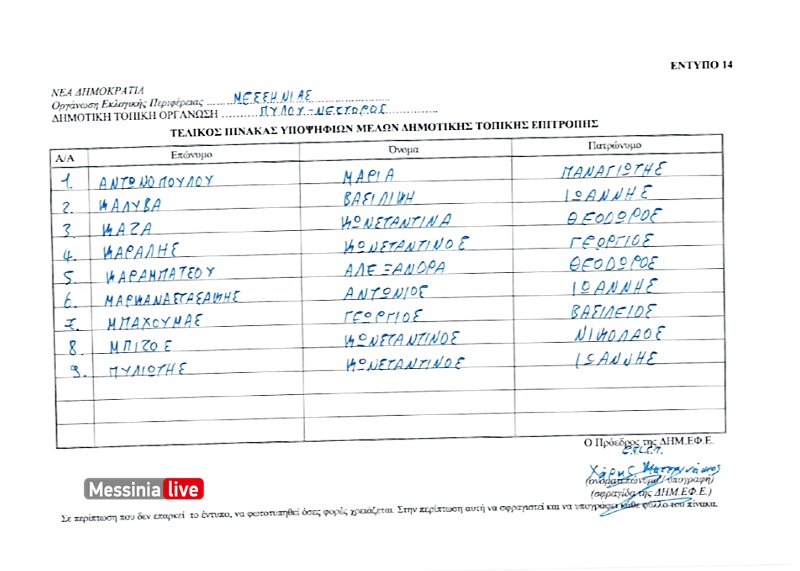 ΕΝΤΥΠΟ 14
ΝΕΑ ΔΗΜΟΚΡΑΤΙΑ
Οργάνωση Εκλογικής Περιφέρειας ΜΕΣΣΗΝΙΑΣ
ΔΗΜΟΤΙΚΗ ΤΟΠΙΚΗ ΟΡΓΑΝΩΣΗ ΠΥΛΟΥ-ΝΕΣΤΟΡΟΣ
ΤΕΛΙΚΟΣ ΠΙΝΑΚΑΣ ΥΠΟΨΗΦΙΩΝ ΜΕΛΩΝ ΔΗΜΟΤΙΚΗΣ ΤΟΠΙΚΗΣ ΕΠΙΤΡΟΠΗΣ
Α/Α Επώνυμο Όνομα Πατρώνυμο
1. ΑΝΤΩΝΟΠΟΥΛΟΥ ΜΑΡΙΑ ΠΑΝΑΓΙΩΤΗΣ
2. ΚΑΛΥΒΑ ΒΑΣΙΛΙΚΗ ΙΩΑΝΝΗΣ
3. ΚΑΖΑ ΚΩΝΣΤΑΝΤΙΝΑ ΘΕΟΔΩΡΟΣ
4. ΚΑΡΑΛΗΣ ΚΩΝΣΤΑΝΤΙΝΟΣ ΓΕΩΡΓΙΟΣ
5. ΚΑΡΑΜΠΑΤΣΟΥ ΑΛΕΞΑΝΔΡΑ ΘΕΟΔΩΡΟΣ
6. ΑΝΤΩΝΙΟΣ ΙΩΑΝΝΗΣ
7. ΜΠΑΧΟΥΜΑΣ ΓΕΩΡΓΙΟΣ ΒΑΣΙΛΕΙΟΣ
8. ΜΠΙΖΟΣ ΚΩΝΣΤΑΝΤΙΝΟΣ ΝΙΚΟΛΑΟΣ
9. ΠΥΛΙΩΤΗΣ ΚΩΝΣΤΑΝΤΙΝΟΣ ΙΩΑΝΝΗΣ
Ο Πρόεδρος της ΔΗΜ.ΕΦ.Ε.
(ονοματεπώνυμο/υπογραφή)
(σφραγίδα της ΔΗΜ.ΕΦ.Ε.)
Messinia live
Σε περίπτωση που δεν επαρκεί το έντυπο, να φωτοτυπηθεί όσες φορές χρειάζεται. Στην περίπτωση αυτή να σφραγιστεί και να υπογραφεί κάθε φύλλο του πίνακα.